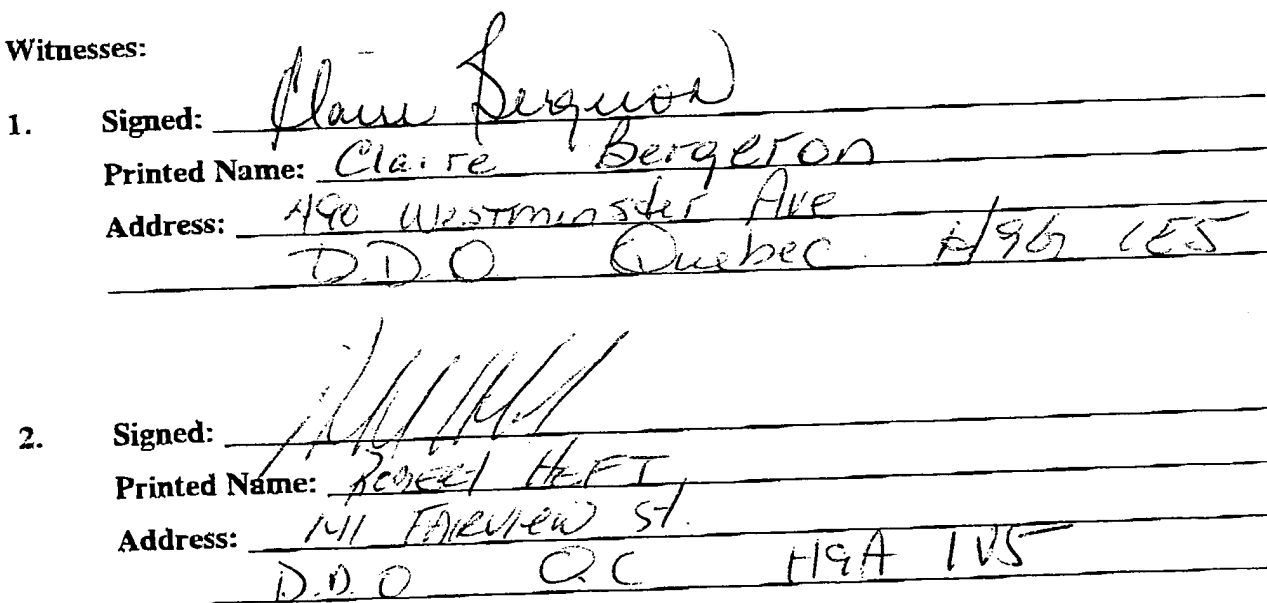 Witnesses:
1. Signed: Claire Bergeron
Printed Name: Claire Bergeron
Address: 490 Westminster Ave
D.D.O. Quebec. H9G 1E5
2. Signed:
Printed Name: Robert HEFT
Address: 141 FAIRVIEW St.
D.D.O QC H9A 1V5